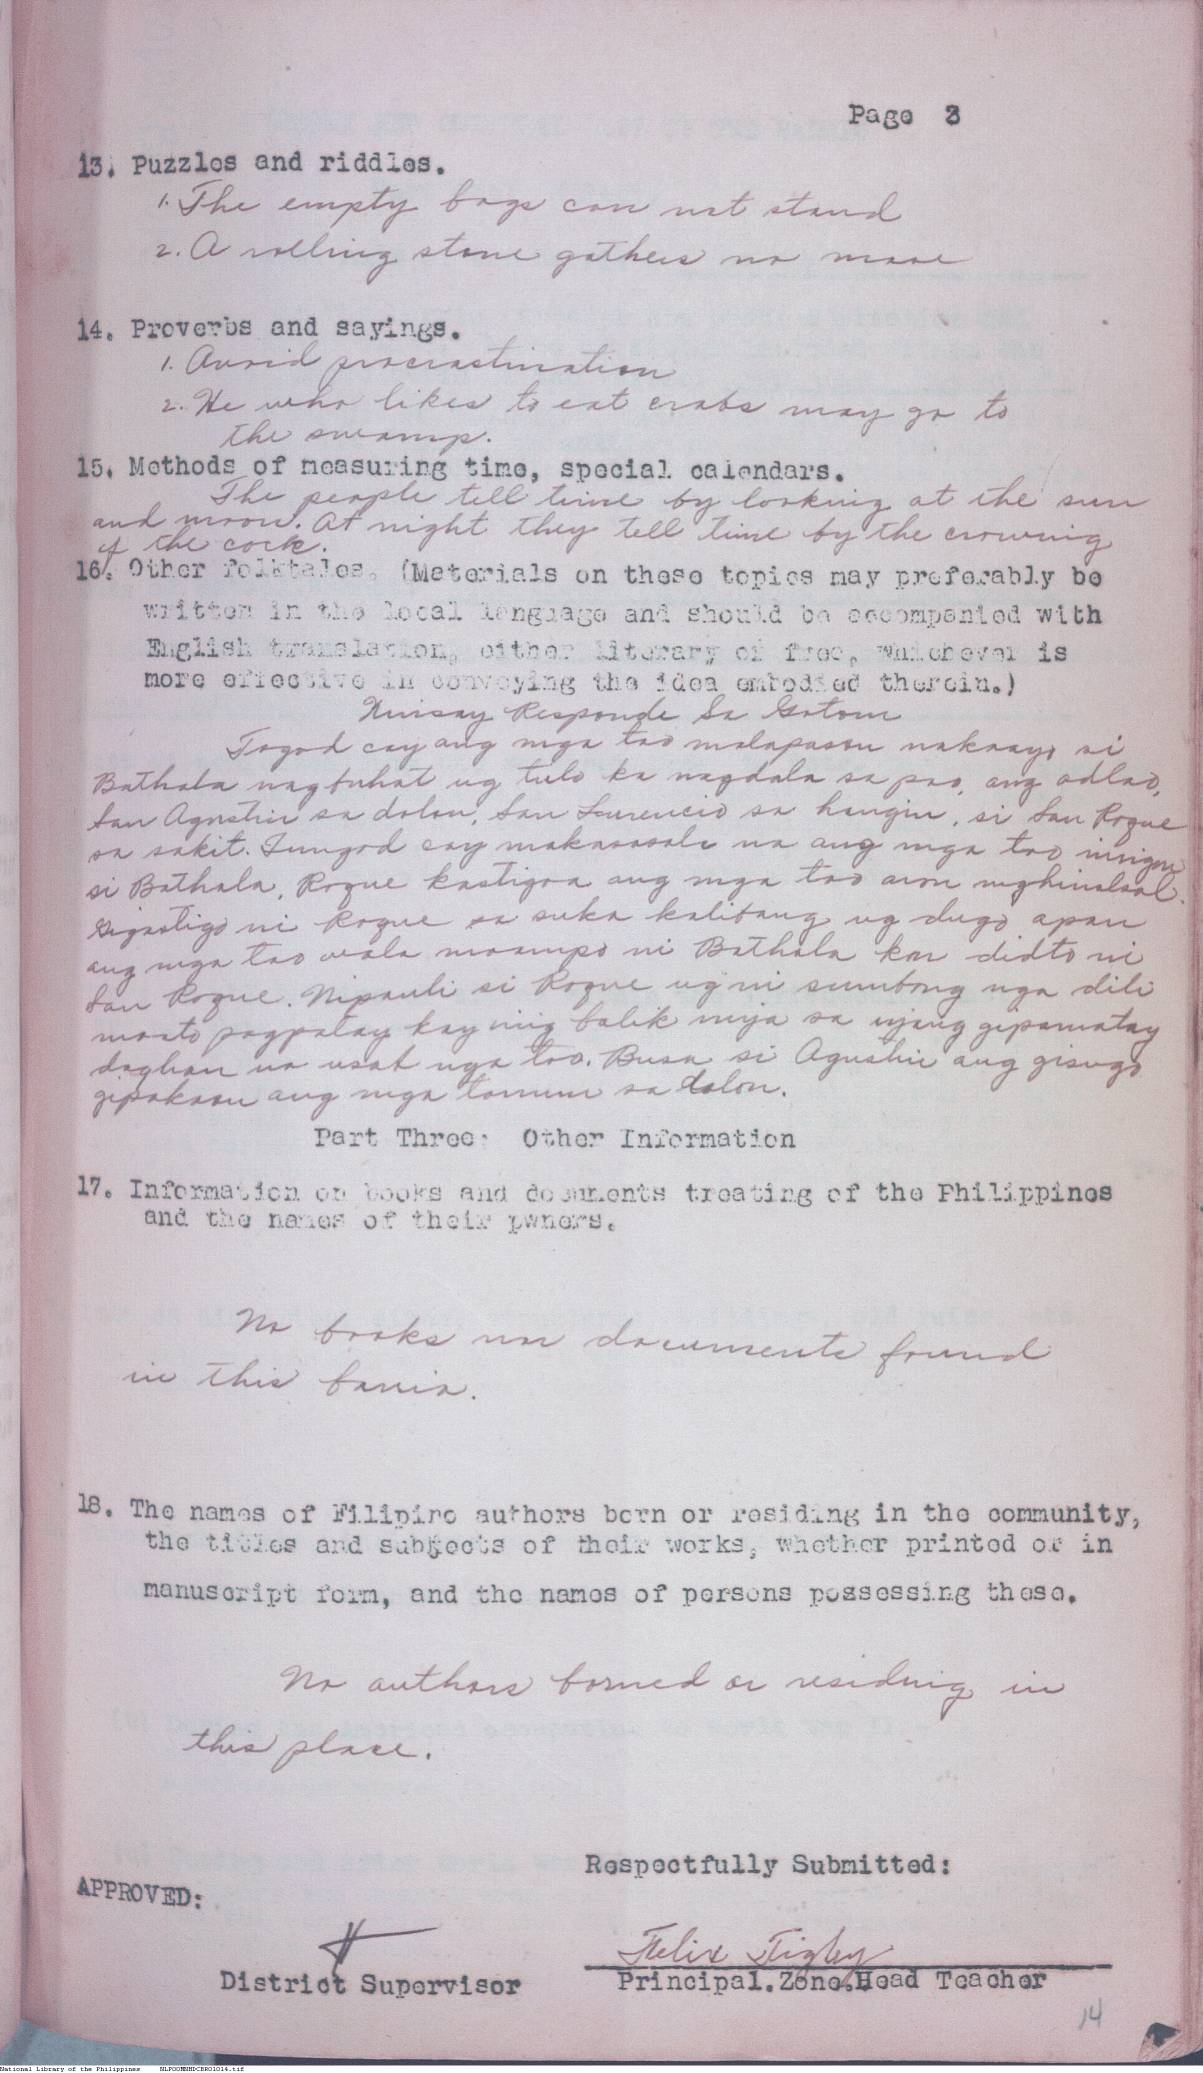 Page 3
13. Puzzles and riddles.
1. The empty bags can not stand
2. A rolling stone gathers no more
14. Proverbs and sayings.
1. Avoid procrastination
2. He who likes to eat crabs may go to
the swamp.
15. Methods of measuring time, special calendars.
The people tell time by looking at the sun
and moon. At night they tell time by the crowing
of the cock.
16. Other folktales. (Materials on these topics may preferably be
written in the local language and should be accompanied with
English translation, either literary or free, whichever is
more effective in conveying the idea embodied therein.)
Responde Sa Gotom
Togod cay ang mga tao malapason nakaayo si
Bathala nagbuhat ug tulo ka nagdala sa pao, ang adlao,
San Agustin sa dolon, San Laurencio sa hangin, si San Roque
sa sakit. Tungod cay makasasala na ang mga tao
si Bathala, Roque kastigoa ang mga tao aron maghinolsol.
ni Roque sa suka kalibang ug dugo apan
ang mga tao wala moampo ni Bathala kon didto ni
San Roque. Nipauli si Roque ug ni sumbong nga dili
maato pagpatay kay mig balik niya sa iyang gipamatay
daghan na usab nga tao. Busa si Agustin ang gisugo
gipakaon ang mga tanum sa dolon.
Part Three: Other Information
17. Information on books and documents treating of the Philippines
and the names of their pwners.
No books nor documents found
in this barrio.
18. The names of Filipino authors born or residing in the community,
the titles and subjects of their works, whether printed or in
manuscript form, and the names of persons possessing these.
No authors borned or residing in
this place.
Respectfully Submitted:
APPROVED:
Felix Tigley
District Supervisor
Principal.Zone.Head Teacher
14
National Library of the Philippines NLPOOMNHDCBR01014.tif